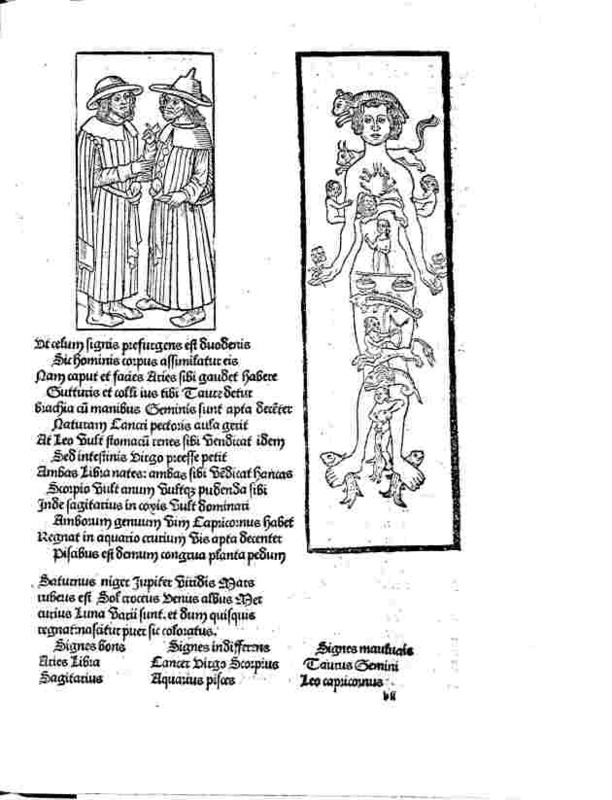 Ut celum signis prefurgens est duodenis
Sic hominis corpus assimilatur eis
Nam caput et facies Aries sibi gaudet habere
Gutturis et colli ius tibi Taure detur
brachia cū manibus Geminis sunt apta decēter
Naturam Cancri pectoris aula gerit
At Leo Vult stomacū renes sibi Vendicat idem
Sed intestinis Virgo preesse petit
Ambas Libra nates: ambas sibi Vēdicat hancas
Scorpio Vult anum Vultqꝫ pudenda sibi
Inde sagitarius in coxis Vult dominari
Amborum genuum Vim Capricornus habet
Regnat in aquario crurium Vis apta decenter
Piscibus est donum congrua planta pedum
Saturnus niger Jupiter Viridis Mars
rubeus est Sol croceus Venus albus Mer
curius Luna Varii sunt. et dum quisquis
regnat nascitur puer sic coloratus.
Signes bons Signes indifferens Signes mauluais
Aries Libra Cancer Virgo Scorpius Taurus Gemini
Sagitarius Aquarius pisces Leo capricornus